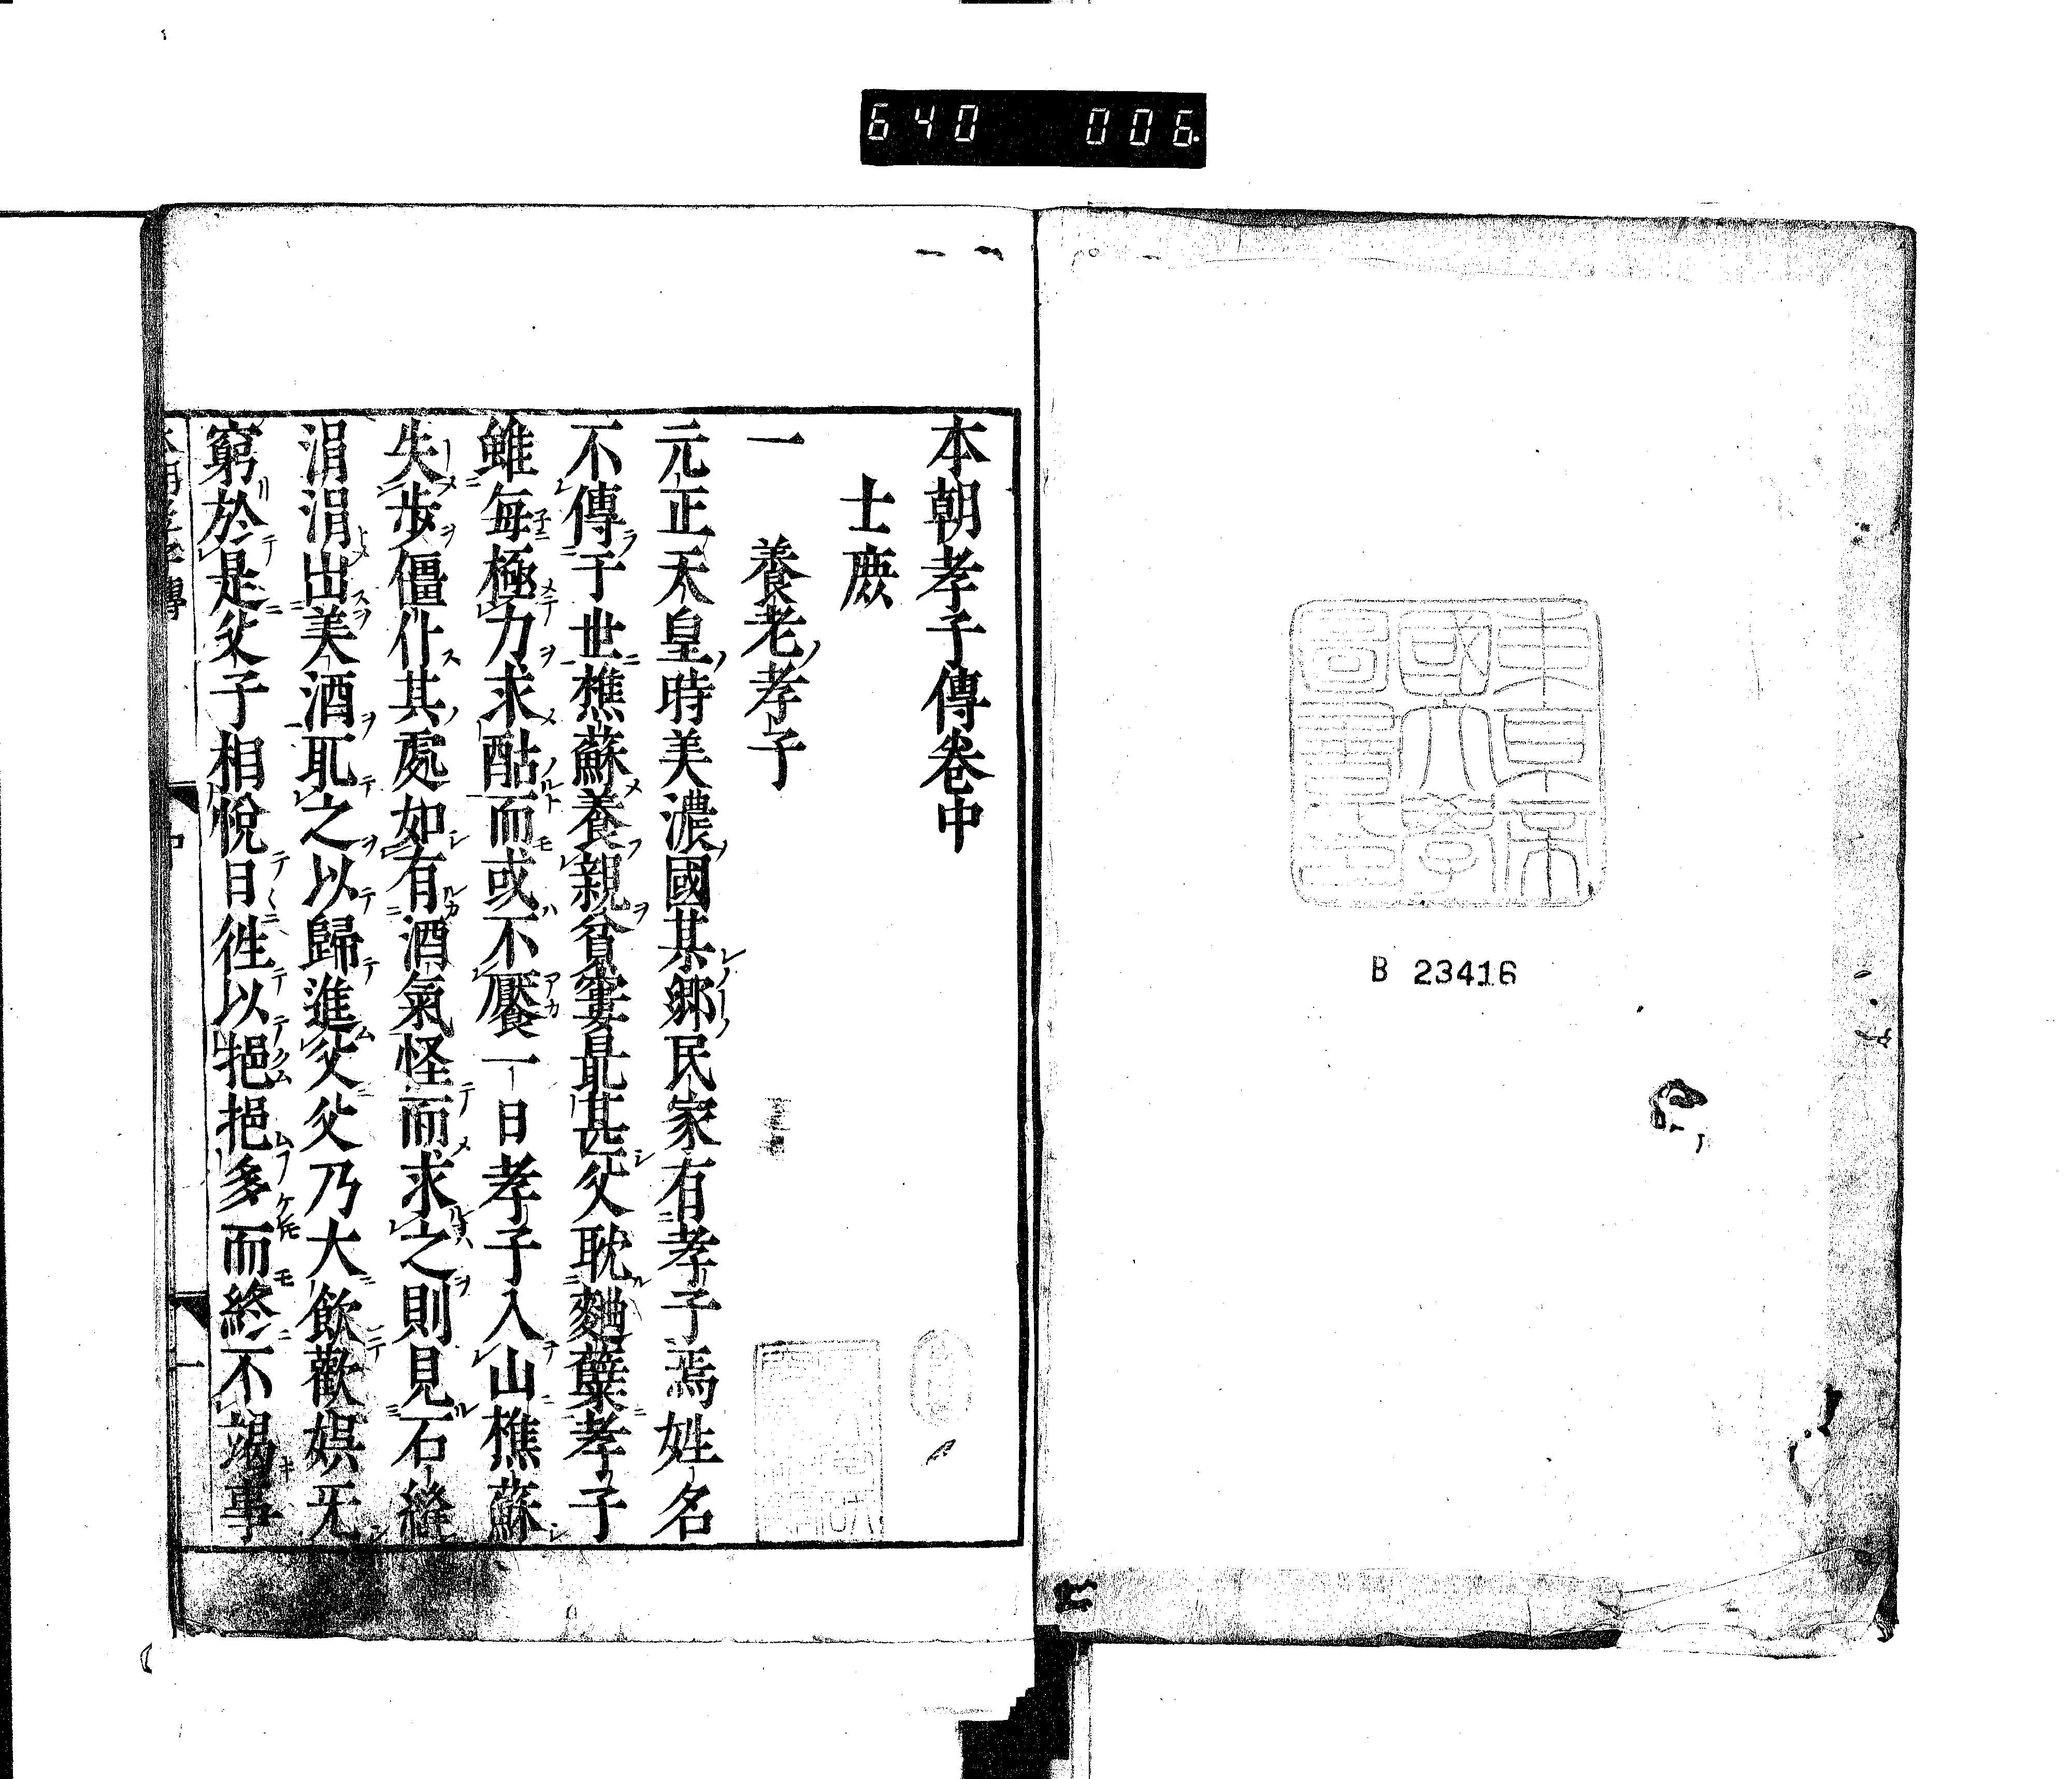 640 006
東京帝
國大學
圖書印
B 23416
本朝孝子傳卷中
士庶
一 養老ノ孝子
元正天皇時美濃國某鄉民家有孝子焉姓名
不傳于世樵蘇養親貧窶最甚父耽麯糵孝子
雖每極力求酤而或不饜一日孝子入山樵蘇
失步僵仆其處如有酒氣怪而求之則見石縫
涓涓出美酒取之以歸進父父乃大飲歡娯无
窮於是父子相悅日徃以挹挹多而終不竭事
中
一